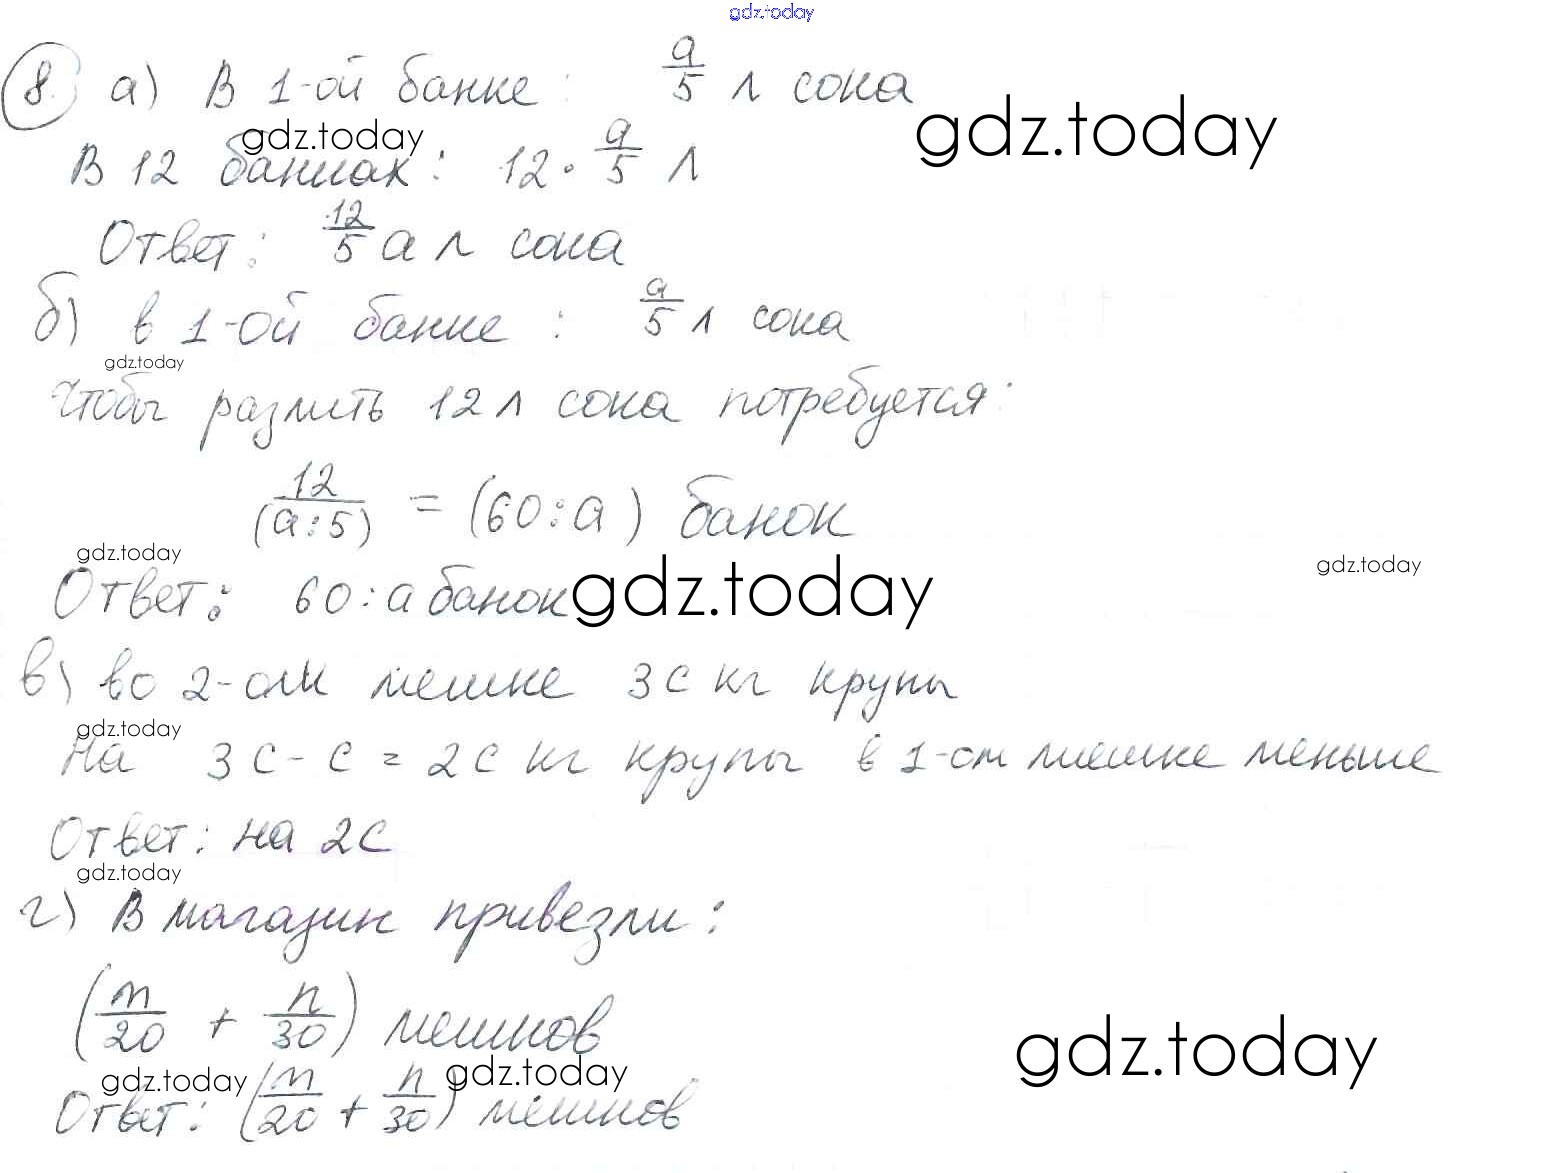 gdz.today
8. а) В 1-ой банке: a/5 л сока
gdz.today
gdz.today
В 12 банках: 12 · a/5 л
Ответ: 12/5 a л сока
б) в 1-ой банке: a/5 л сока
gdz.today
Чтобы разлить 12 л сока потребуется:
12/(a:5) = (60:a) банок
gdz.today
gdz.today
Ответ: 60:a банок
gdz.today
в) во 2-ом мешке 3c кг крупы
gdz.today
На 3c - c = 2c кг крупы в 1-ом мешке меньше
Ответ: на 2c
gdz.today
г) В магазин привезли:
(m/20 + n/30) мешков
gdz.today
gdz.today
gdz.today
Ответ: (m/20 + n/30) мешков